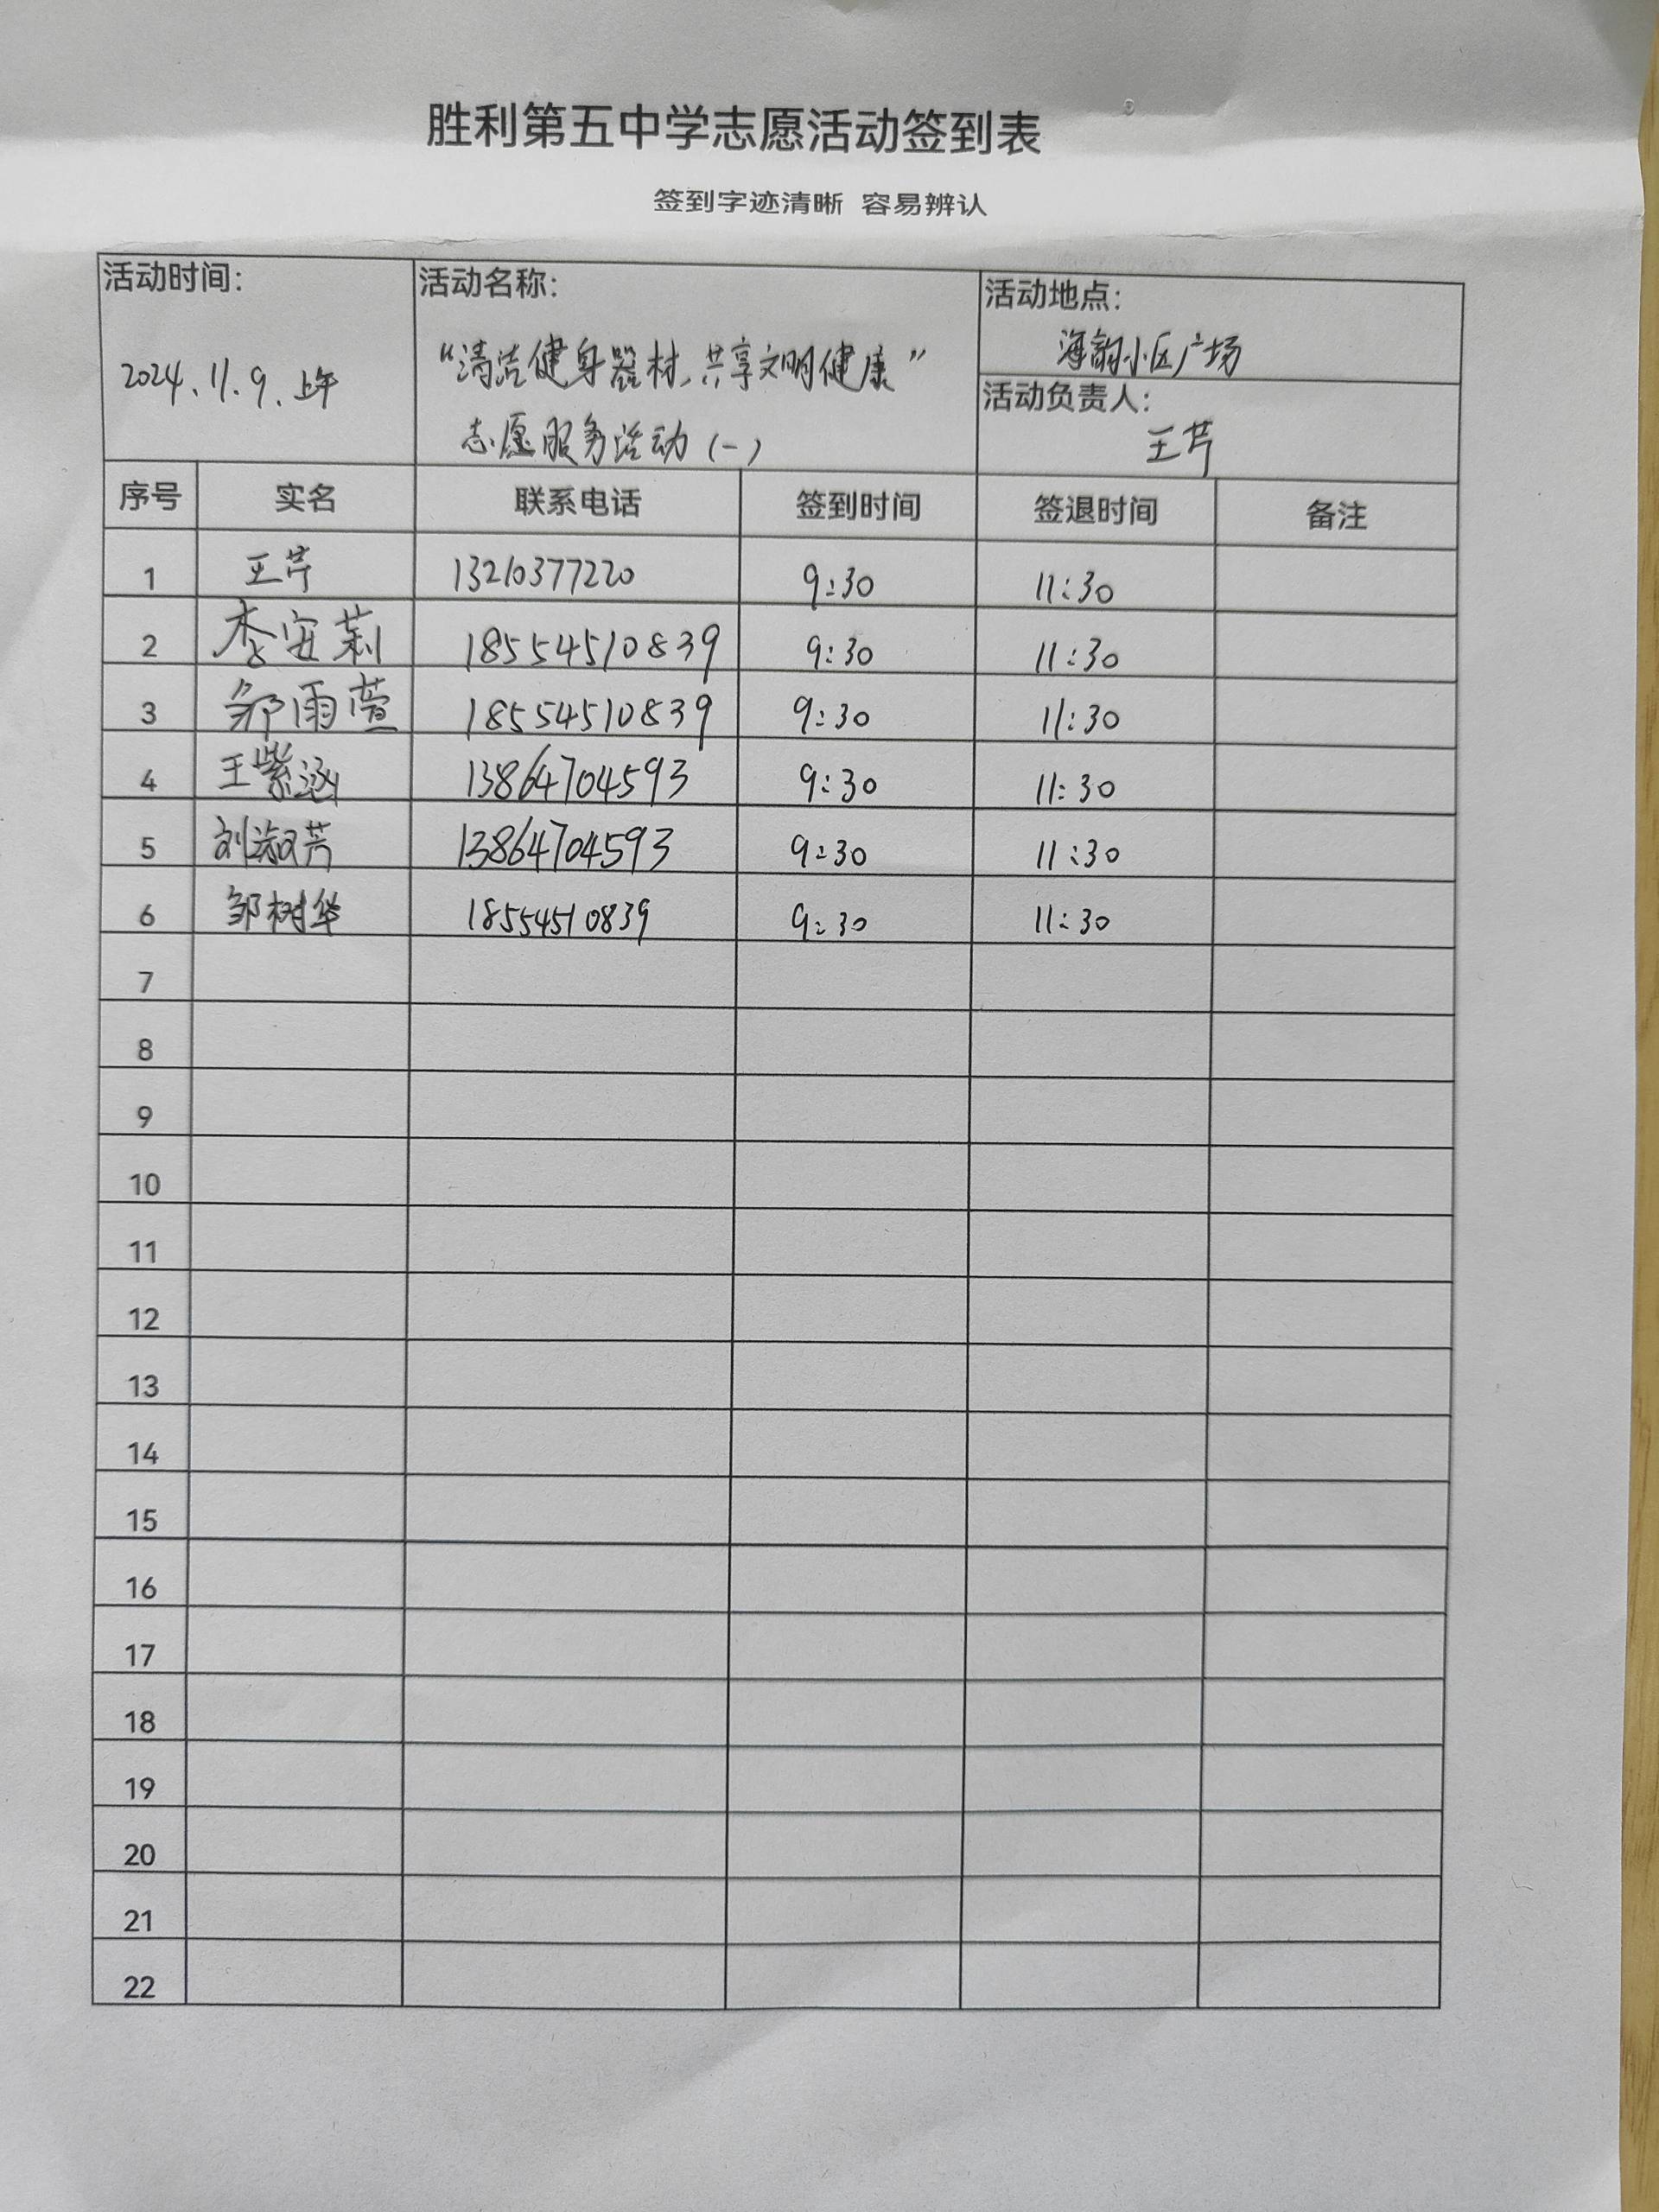 胜利第五中学志愿活动签到表
签到字迹清晰 容易辨认
活动时间: 活动名称: 活动地点:
2024.11.9.上午 “清洁健身器材,共享文明健康” 海韵小区广场
志愿服务活动(一) 活动负责人: 王芹
序号 实名 联系电话 签到时间 签退时间 备注
1 王芹 13210377220 9:30 11:30
2 李安莉 18554510839 9:30 11:30
3 邹雨萱 18554510839 9:30 11:30
4 王紫涵 13864704593 9:30 11:30
5 刘淑芹 13864704593 9:30 11:30
6 邹树华 18554510839 9:30 11:30
7
8
9
10
11
12
13
14
15
16
17
18
19
20
21
22